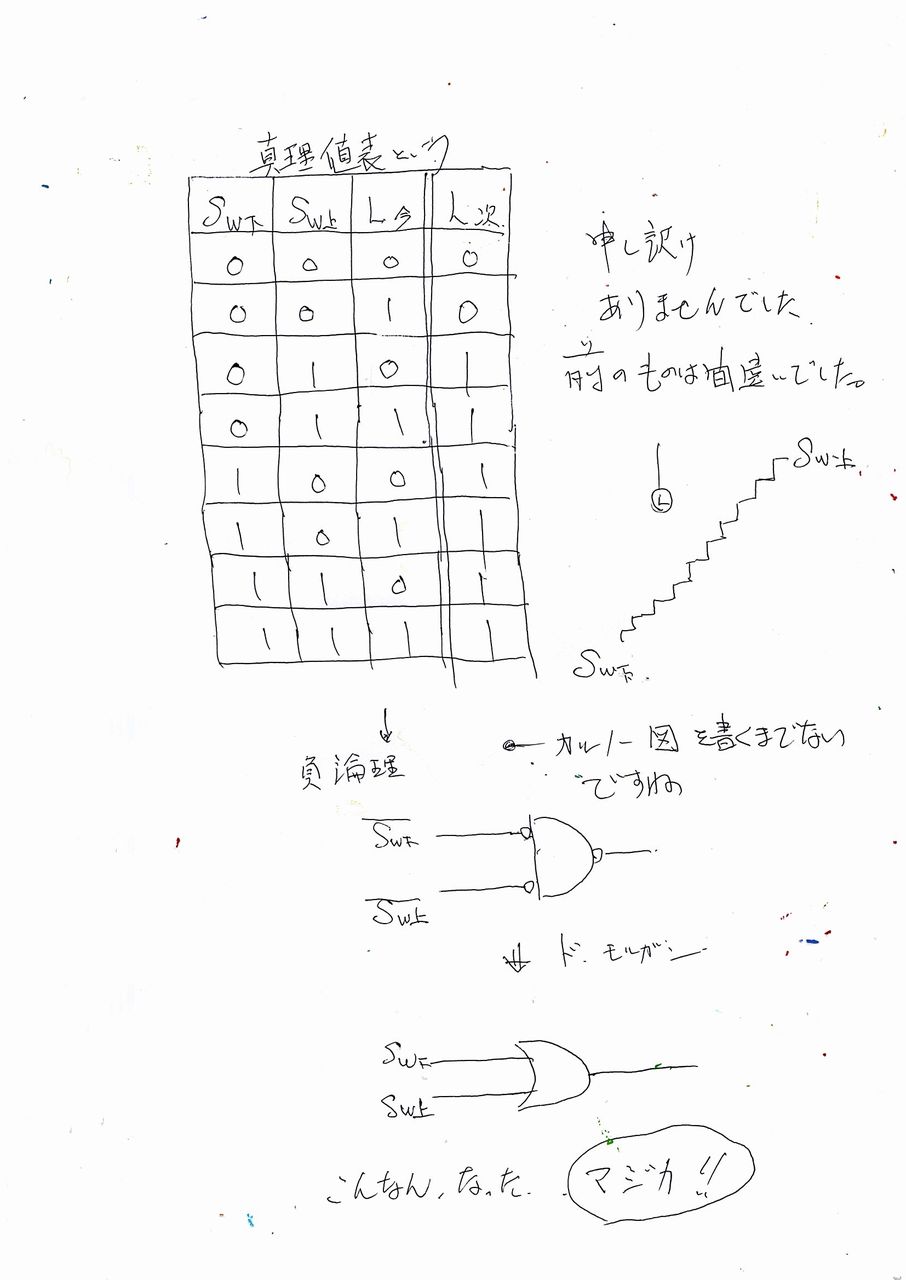 真理値表という
SW下 SW上 L今 L次
0 0 0 0
0 0 1 0
0 1 0 1
0 1 1 1
1 0 0 1
1 0 1 1
1 1 0 1
1 1 1 1
申し訳け
ありませんでした
前のものは間違いでした。
SW上
L
SW下.
負論理
カルノー図を書くまでない
ですね
S̅W̅下̅
S̅W̅上̅
ド・モルガン
SW下
SW上
こんなん、なった.
マジカ!!